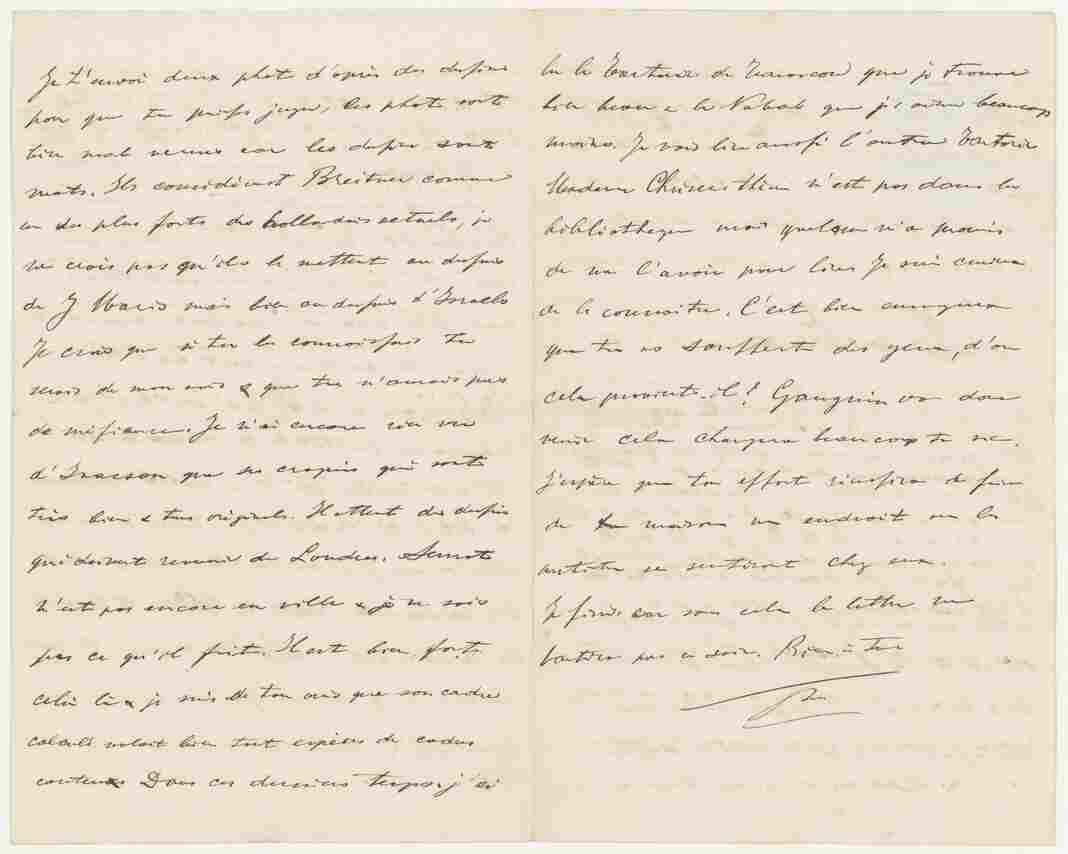 Je t'envoi deux phot d'après des dessins
pour que tu puisses juger, les phot. sont
bien mal venues car les dessins sont
mats. Ils considèrent Breitner comme
un des plus forts des hollandais actuels, je
ne crois pas qu'ils le mettent au dessus
de J Maris mais bien au dessus d'Israels
Je crois que si tu les connaissais tu
serais de mon avis & que tu n'aurais pas
de méfiance. Je n'ai encore rien vu
d'Isacson que ses croquis qui sont
très bien & très originals. Il attend des dessins
qui doivent revenir de Londres. Seurat
n'est pas encore en ville & je ne sais
pas ce qu'il fait. Il est bien fort
celui là & je suis de ton avis que son cadre
calculé valait bien tout espèces de cadres
couteux Dans ces derniers temps j'ai
lu le Tartarin de Tarascon que je trouve
bien beau & le Nabab que j'aime beaucoup
moins. Je vais lire aussi l'autre Tartarin
Madame Chrisanthème n'est pas dans la
bibliothèque mais quelqu'un m'a promis
de me l'avoir pour lire Je suis curieux
de le connaitre. C'est bien ennuyeux
que tu as souffert des yeux, d'où
cela provient-il? Gauguin va donc
venir cela changera beaucoup ta vie.
J'espère que ton effort réussira de faire
de ta maison un endroit où les
artistes se sentiront chez eux.
Je finis car sans cela la lettre ne
partira pas ce soir. Bien à toi
Theo